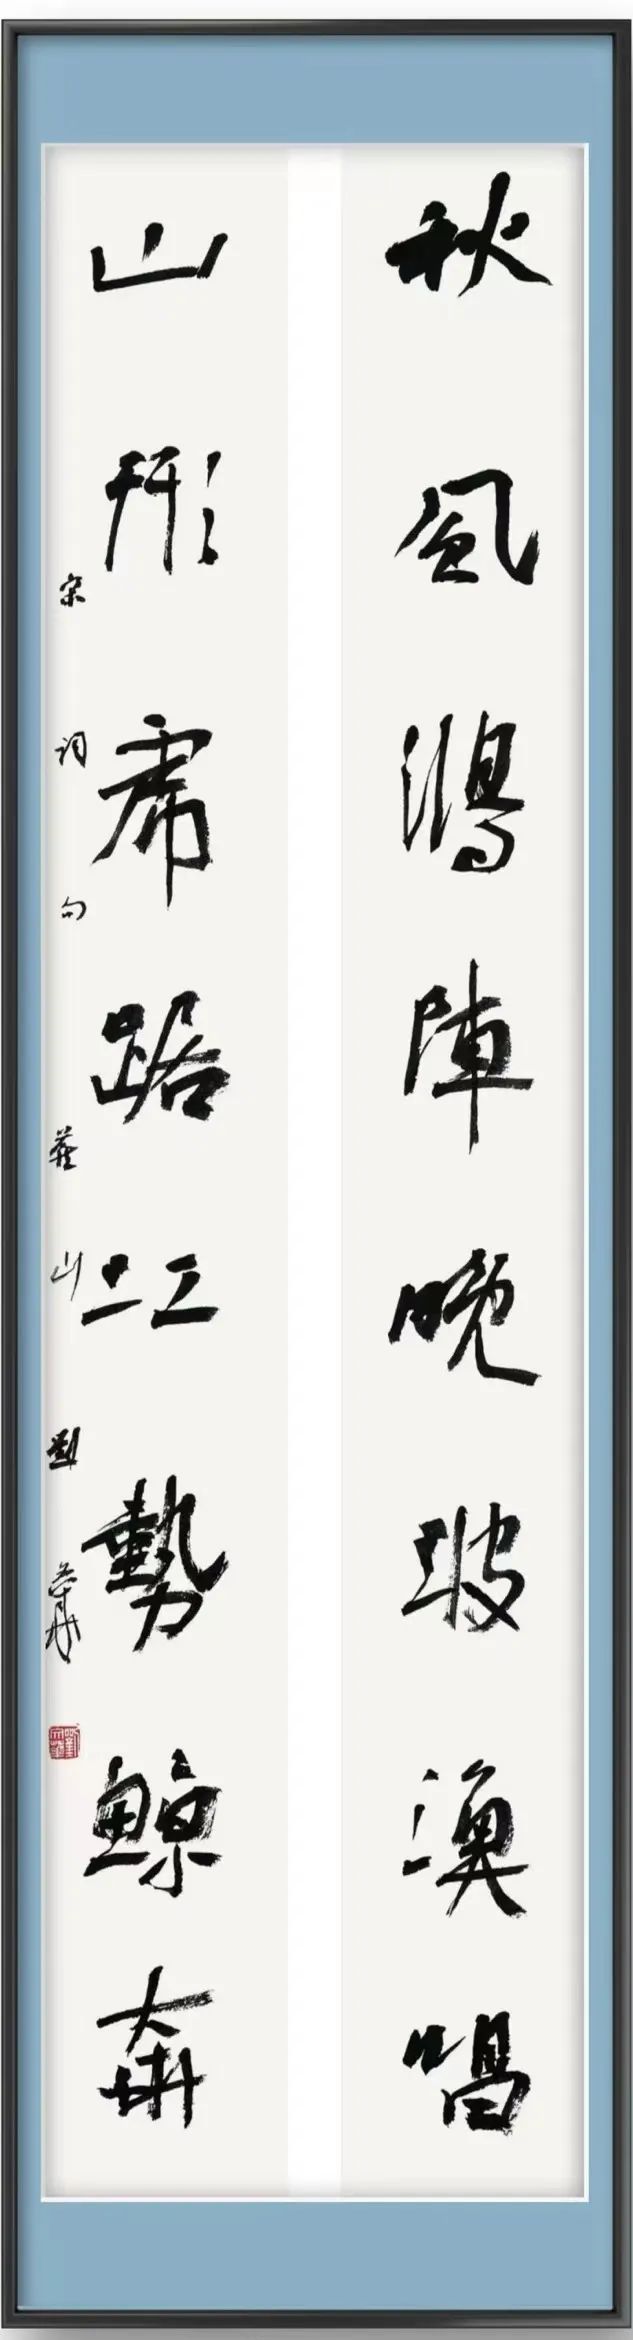 秋風鴻陣晚坡漁唱
山形虎踞江勢鯨奔
宋詞句 山劉